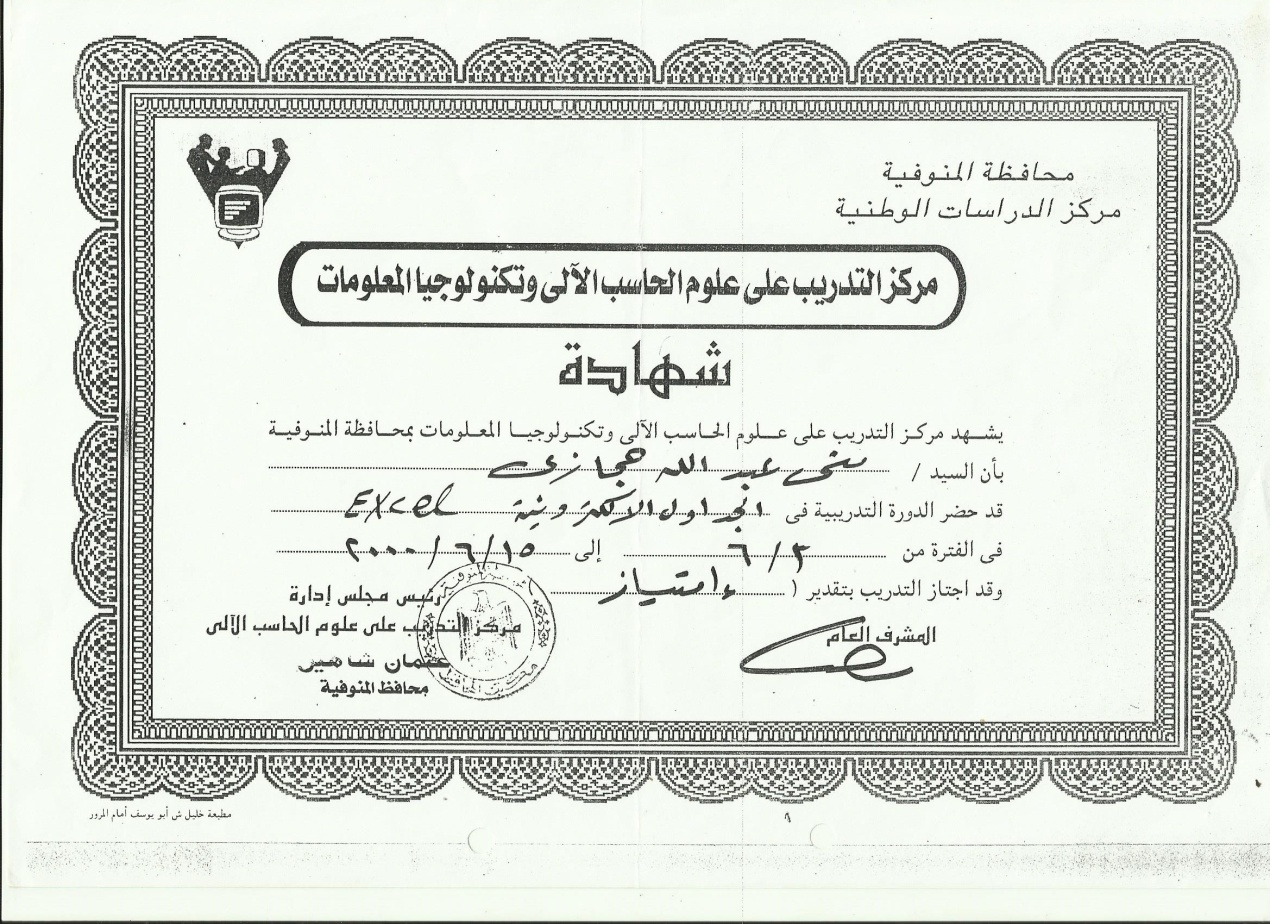 محافظة المنوفية
مركز الدراسات الوطنية
مركز التدريب على علوم الحاسب الآلى وتكنولوجيا المعلومات
شهادة
يشهد مركز التدريب على علوم الحاسب الآلى وتكنولوجيا المعلومات بمحافظة المنوفية
بأن السيد / عبد الله حجازى
قد حضر الدورة التدريبية فى الجداول الالكترونية Excel
فى الفترة من ٦/٣ إلى ٢٠٠٠/٦/١٥
وقد اجتاز التدريب بتقدير ( امتياز
المشرف العام
رئيس مجلس إدارة
مركز التدريب على علوم الحاسب الآلى
عثمان شاهين
محافظ المنوفية
مطبعة خليل ش أبو يوسف أمام المرور